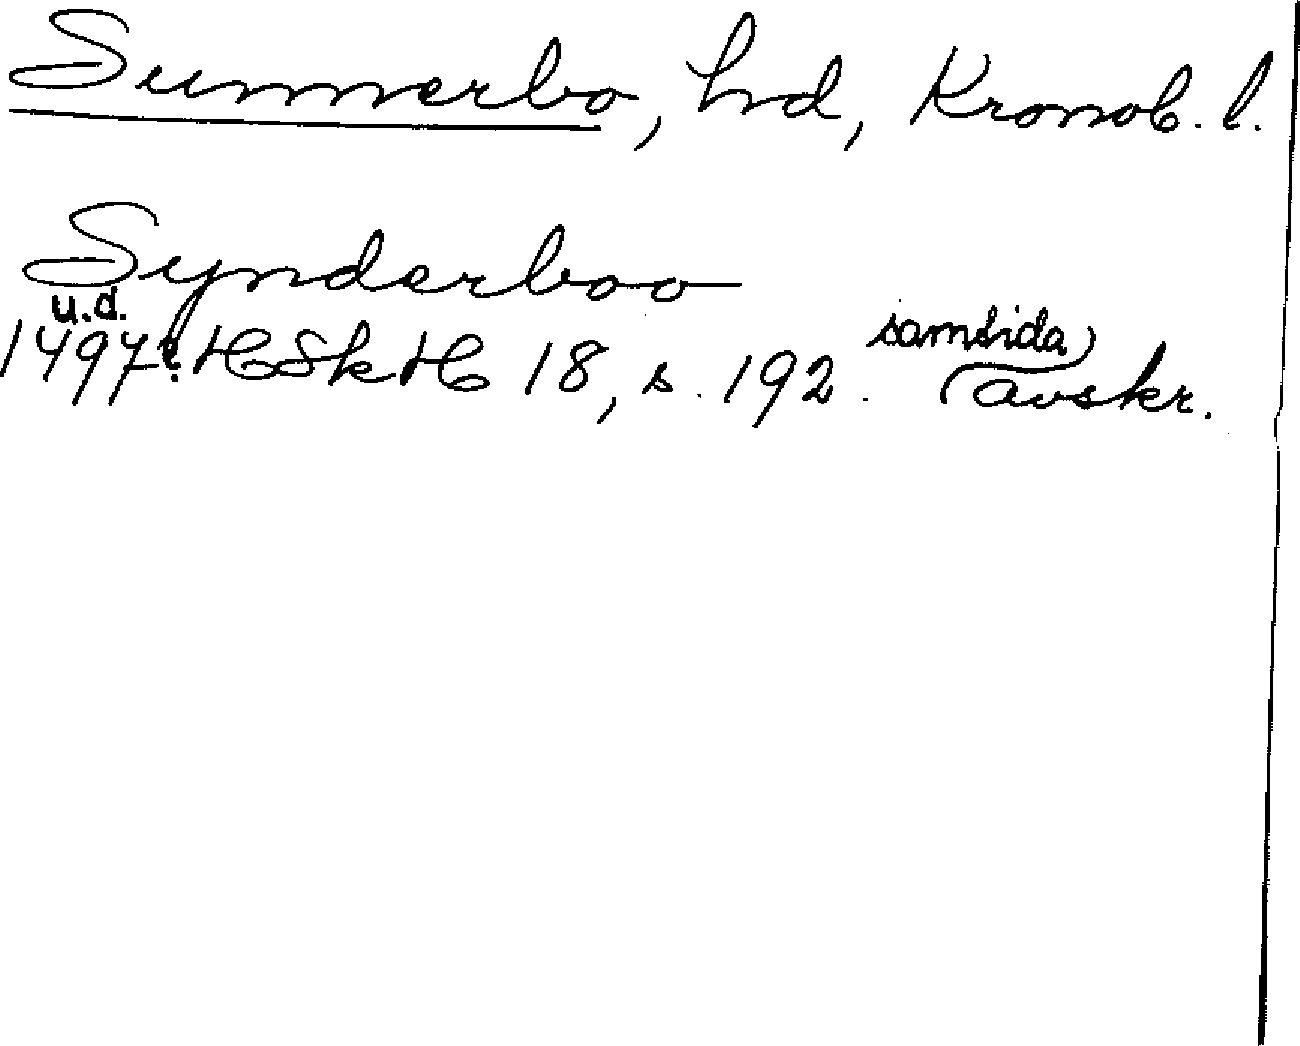 Sunnerbo, hd, Kronob. l.
Synderboo
u.d.
1497? HSkH 18, s. 192. samtida avskr.